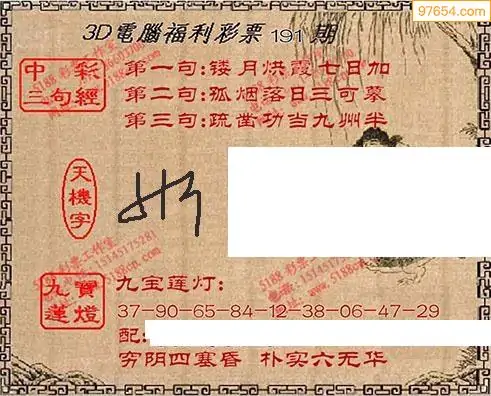 97654.com
3D電腦福利彩票191期
中彩三句經
第一句:镂月烘霞七日加
第二句:孤烟落日三可墓
第三句:疏凿功当九州半
天機字
5188 彩票工作室
15145175281
九寶蓮燈
九宝莲灯:
37-90-65-84-12-38-06-47-29
配:
穷阴四塞昏 朴实六无华